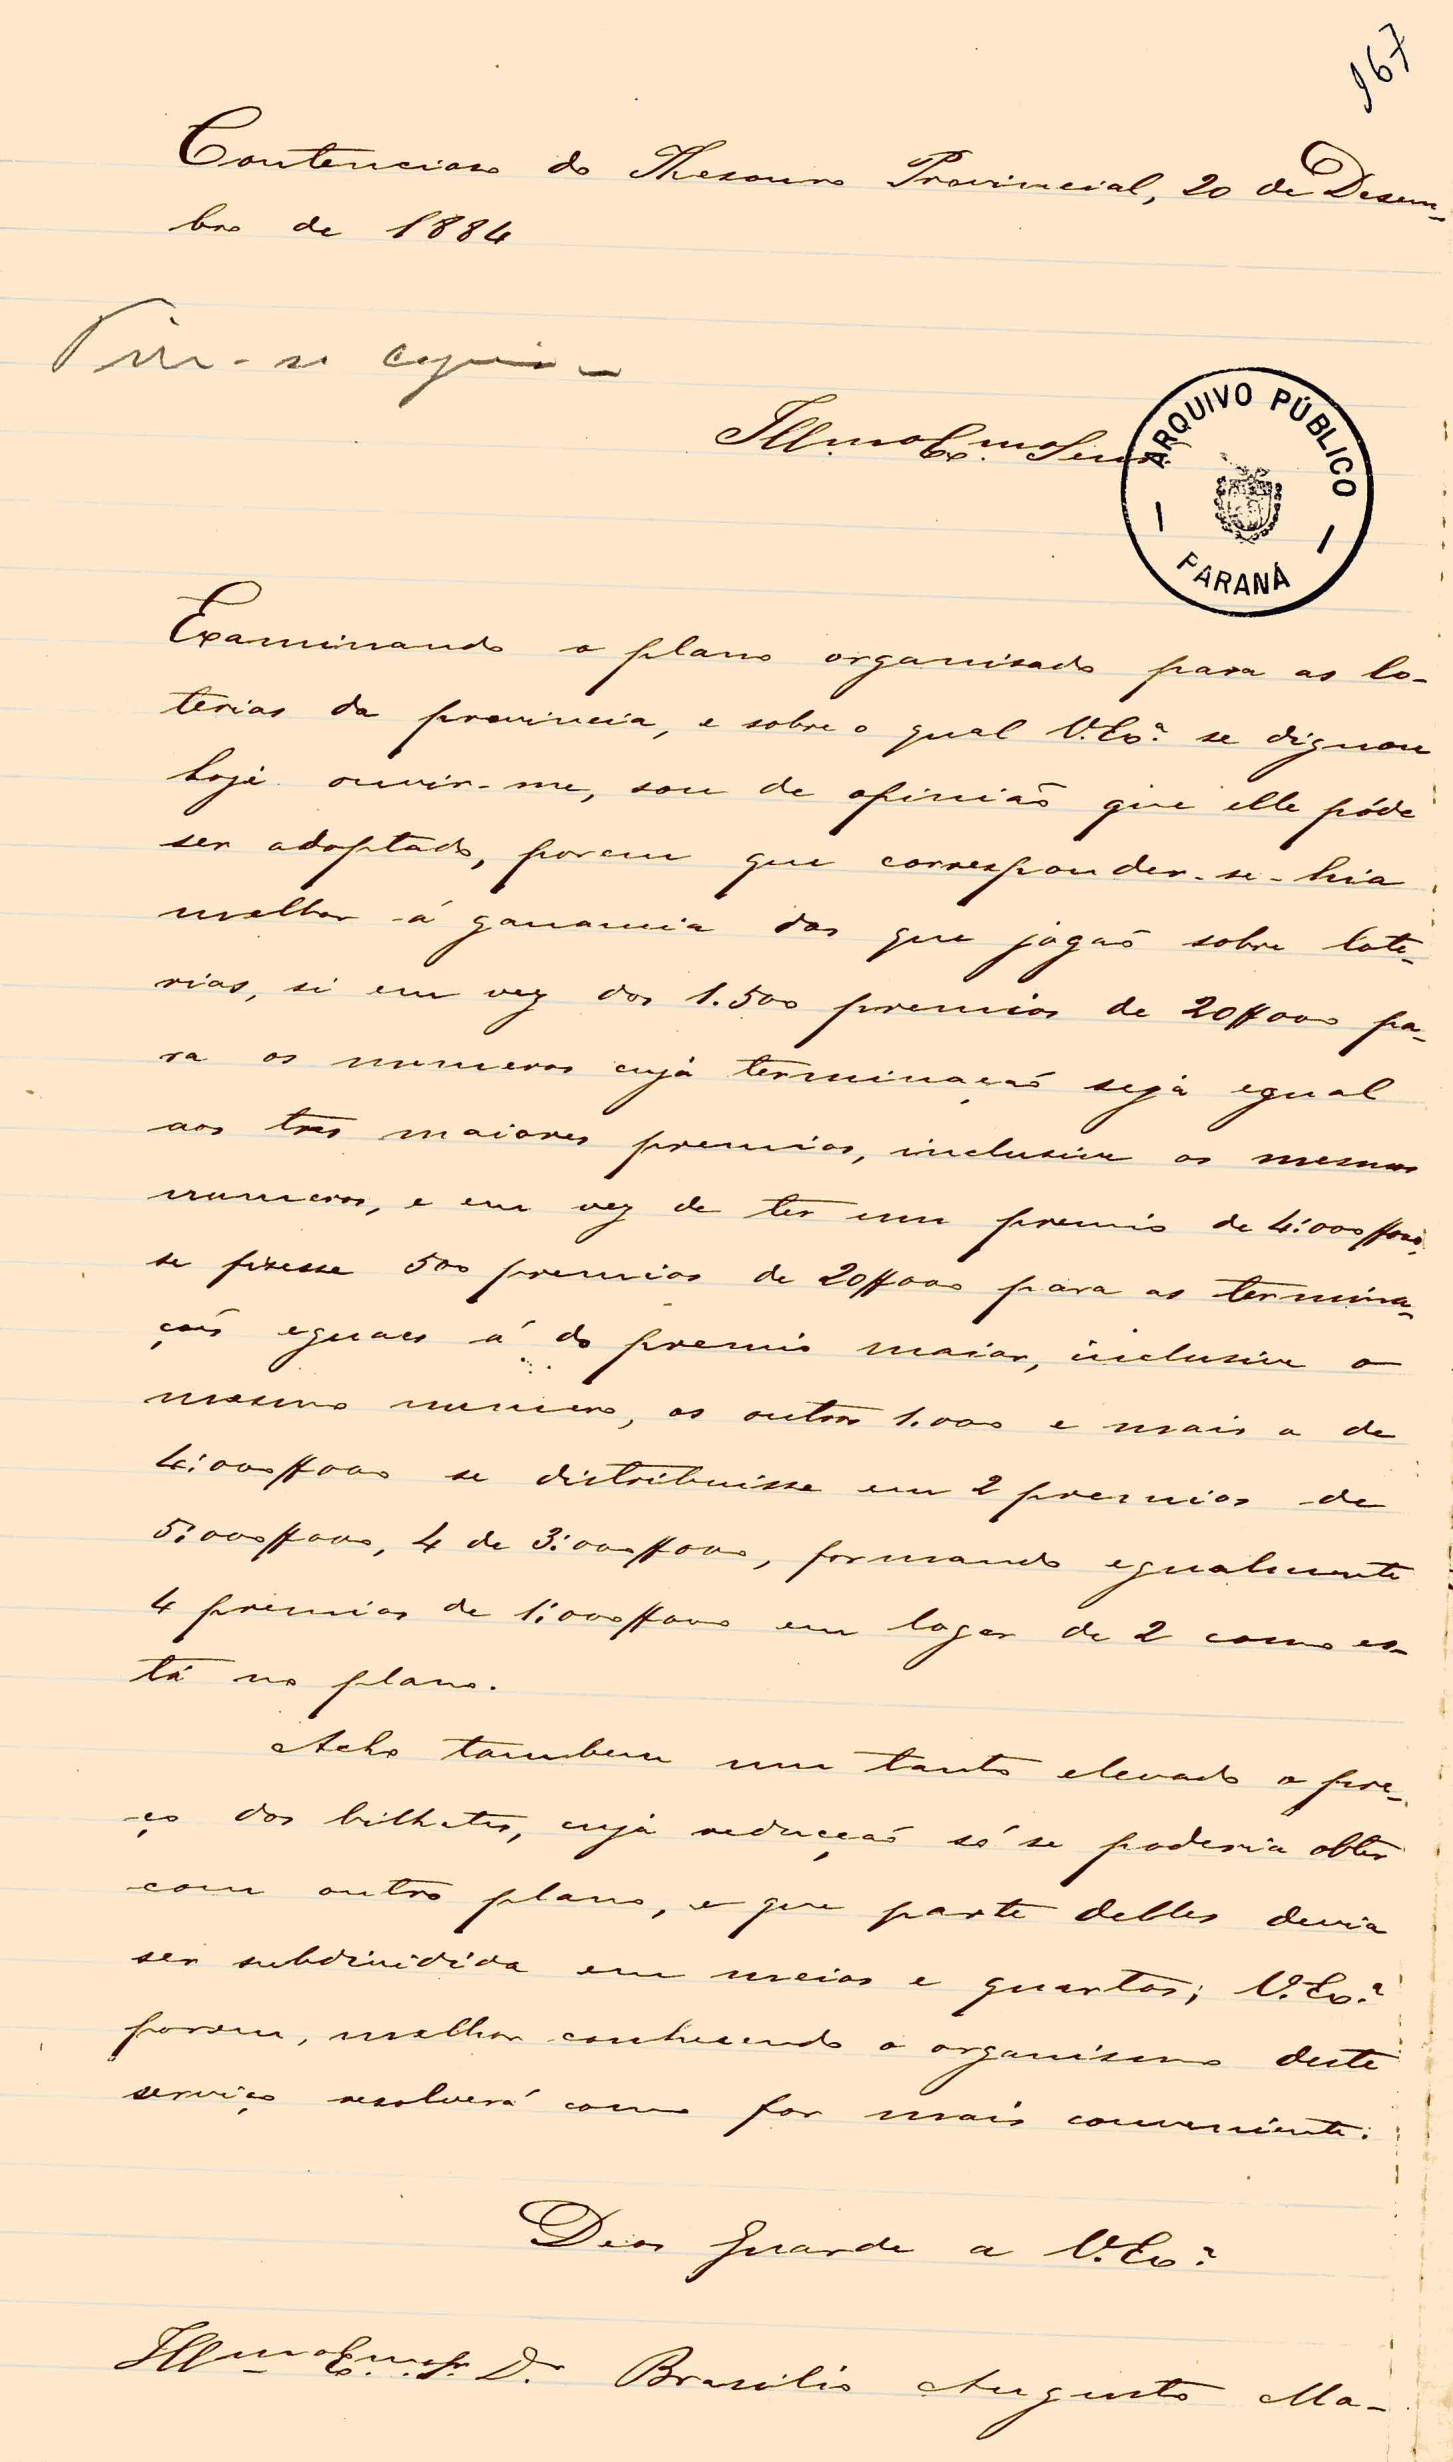 167
Contencioso do Thesouro Provincial, 20 de Desem-
bro de 1884
Tire-se copia
Ill.mo Ex.mo Senr.
ARQUIVO PÚBLICO
PARANÁ
Examinando o plano organisado para as lo-
terias da provincia, e sobre o qual V. Ex.ª se dignou
hoje ouvir-me, sou de opinião que elle póde
ser adoptado, porem que corresponder-se-hia
melhor á ganancia dos que jogão sobre lote-
rias, si em vez dos 1.500 premios de 20$000 pa-
ra os numeros cuja terminação seja egual
aos tres maiores premios, inclusive os mesmos
numeros, e em vez de ter um premio de 4:000$000,
se fizesse 500 premios de 20$000 para as termina-
ções eguaes á do premio maior, inclusive o
mesmo numero, os outros 1.000 e mais o de
4:000$000 se distribuisse em 2 premios de
5:000$000, 4 de 3:000$000, formando egualmente
4 premios de 1:000$000 em logar de 2 como es-
tá no plano.
Acho tambem um tanto elevado o pre-
ço dos bilhetes, cuja reducção só se poderia obter
com outro plano, e que parte delles devia
ser subdividida em meios e quartos; V. Ex.ª
porem, melhor conhecendo o organismo deste
serviço resolverá como for mais conveniente.
Deos Guarde a V. Ex.ª
Ill.mo Ex.mo Sr. Dr. Brasilio Augusto Ma-